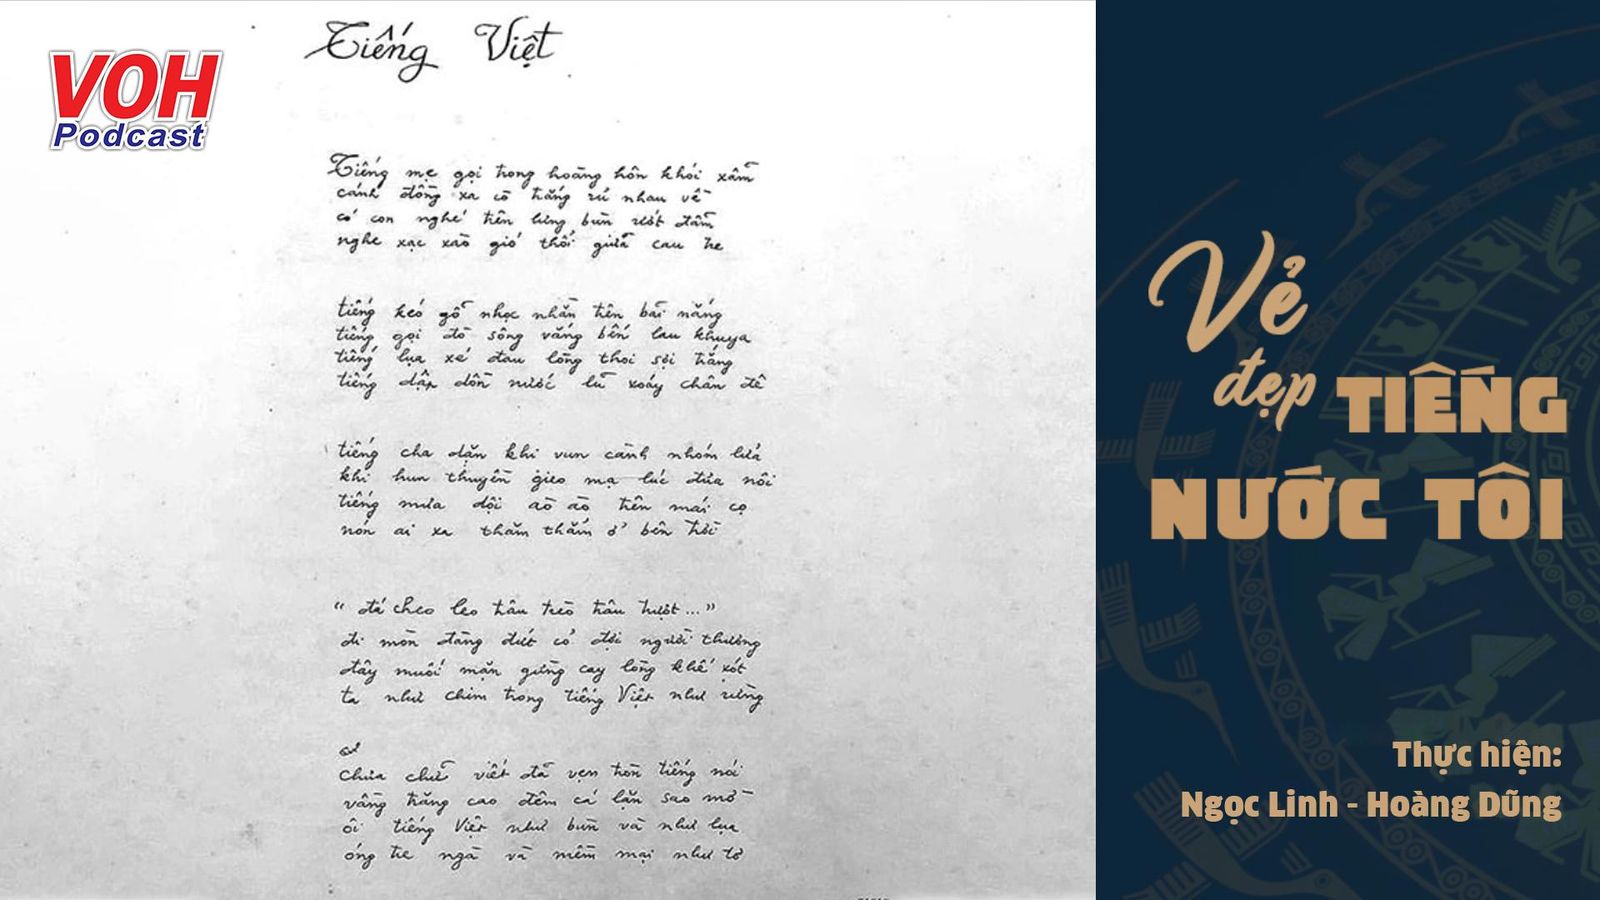 VOH
Podcast
Tiếng Việt
Tiếng mẹ gọi trong hoàng hôn khói xẫm
cánh đồng xa cò trắng rủ nhau về
có con nghé trên lưng bùn ướt đẫm
nghe xạc xào gió thổi giữa cau tre
tiếng kéo gỗ nhọc nhằn trên bãi nắng
tiếng gọi đò sông vắng bến lau khuya
tiếng lụa xé đau lòng thoi sợi trắng
tiếng dập dồn nước lũ xoáy chân đê
tiếng cha dặn khi vun cành nhóm lửa
khi hun thuyền gieo mạ lúc đưa nôi
tiếng mưa dội ào ào trên mái cọ
nón ai xa thăm thẳm ở bên trời
" đá cheo leo trâu trèo trâu trượt ... "
đi mòn đàng đứt cỏ đợi người thương
đây muối mặn gừng cay lòng khế xót
ta như chim trong tiếng Việt như rừng
Chưa chữ viết đã vẹn tròn tiếng nói
vầng trăng cao đêm cá lặn sao mờ
ôi tiếng Việt như bùn và như lụa
óng tre ngà và mềm mại như tơ
Vẻ
đẹp TIẾNG
NƯỚC TÔI
Thực hiện:
Ngọc Linh - Hoàng Dũng